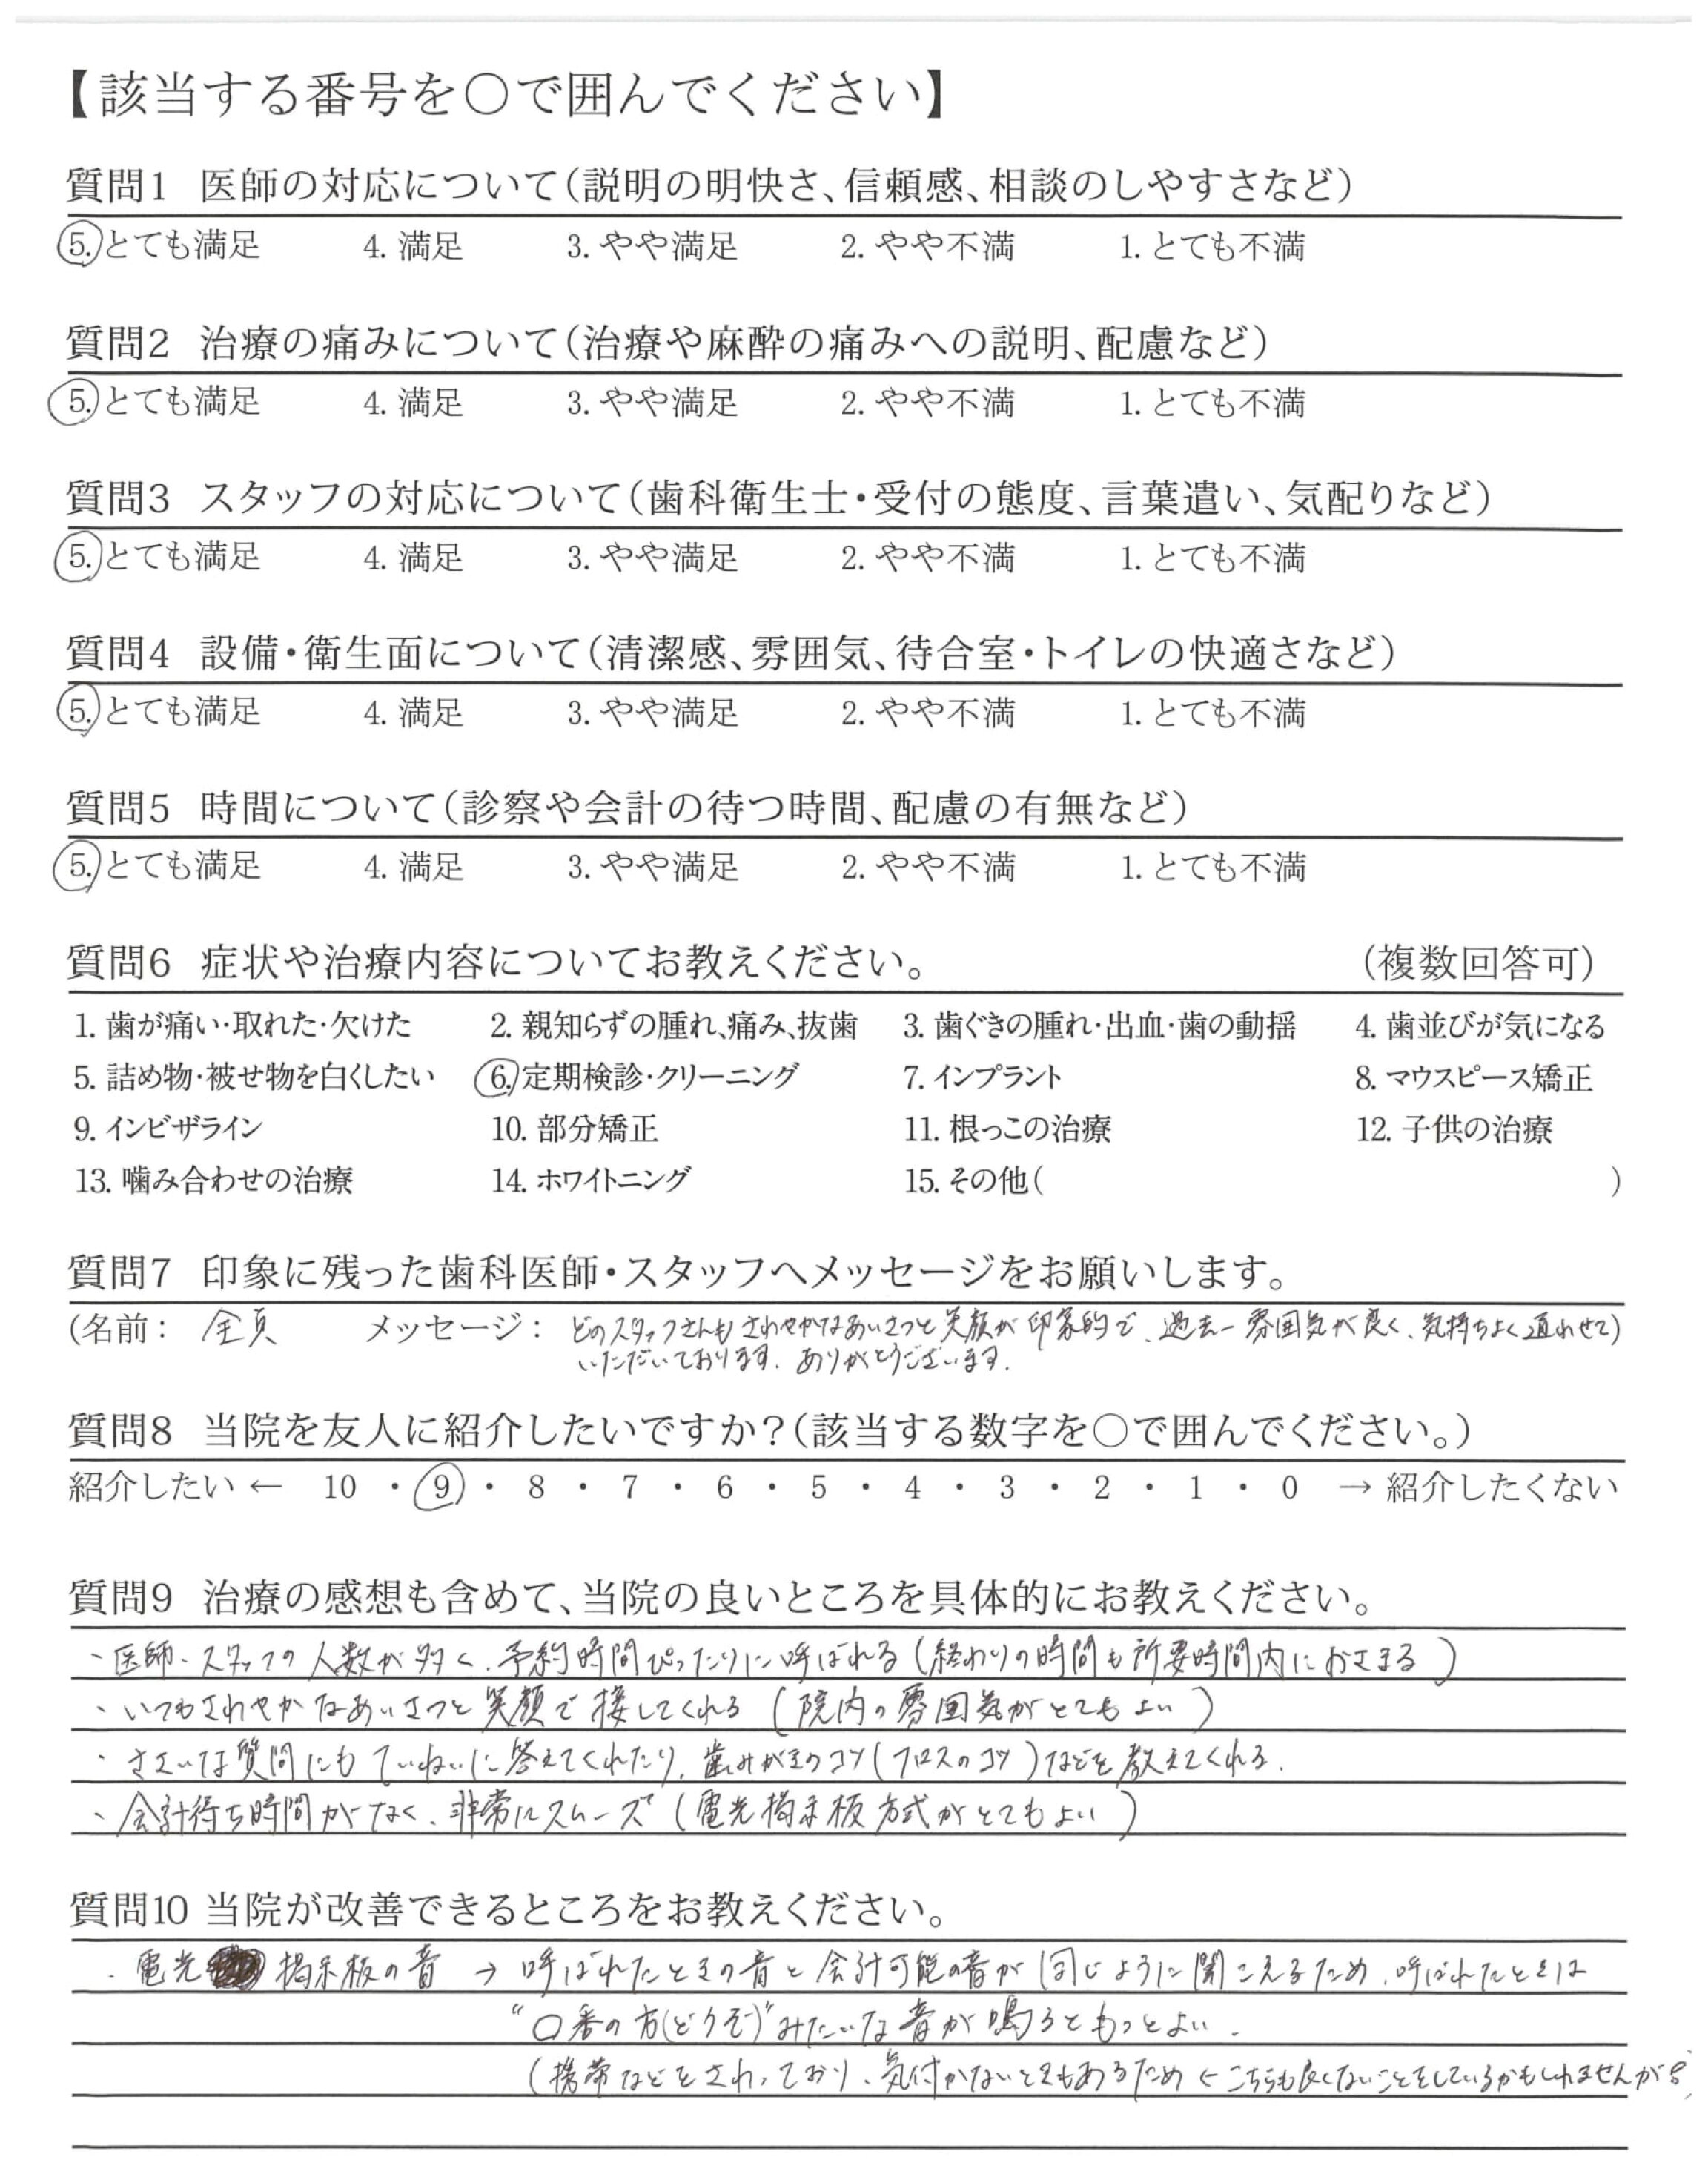 【該当する番号を○で囲んでください】
質問1 医師の対応について(説明の明快さ、信頼感、相談のしやすさなど)
5. とても満足 4. 満足 3. やや満足 2. やや不満 1. とても不満
質問2 治療の痛みについて(治療や麻酔の痛みへの説明、配慮など)
5. とても満足 4. 満足 3. やや満足 2. やや不満 1. とても不満
質問3 スタッフの対応について(歯科衛生士・受付の態度、言葉遣い、気配りなど)
5. とても満足 4. 満足 3. やや満足 2. やや不満 1. とても不満
質問4 設備・衛生面について(清潔感、雰囲気、待合室・トイレの快適さなど)
5. とても満足 4. 満足 3. やや満足 2. やや不満 1. とても不満
質問5 時間について(診察や会計の待つ時間、配慮の有無など)
5. とても満足 4. 満足 3. やや満足 2. やや不満 1. とても不満
質問6 症状や治療内容についてお教えください。 (複数回答可)
1. 歯が痛い・取れた・欠けた 2. 親知らずの腫れ、痛み、抜歯 3. 歯ぐきの腫れ・出血・歯の動揺 4. 歯並びが気になる
5. 詰め物・被せ物を白くしたい 6. 定期検診・クリーニング 7. インプラント 8. マウスピース矯正
9. インビザライン 10. 部分矯正 11. 根っこの治療 12. 子供の治療
13. 噛み合わせの治療 14. ホワイトニング 15. その他( )
質問7 印象に残った歯科医師・スタッフへメッセージをお願いします。
(名前: 全員 メッセージ: どのスタッフさんもさわやかなあいさつと笑顔が印象的で、過去一雰囲気が良く、気持ちよく通わせて)
いただいております。ありがとうございます。
質問8 当院を友人に紹介したいですか?(該当する数字を○で囲んでください。)
紹介したい ← 10 ・ 9 ・ 8 ・ 7 ・ 6 ・ 5 ・ 4 ・ 3 ・ 2 ・ 1 ・ 0 → 紹介したくない
質問9 治療の感想も含めて、当院の良いところを具体的にお教えください。
・医師、スタッフの人数が多く、予約時間ぴったりに呼ばれる(終わりの時間も所要時間内におさまる)
・いつもさわやかなあいさつと笑顔で接してくれる(院内の雰囲気がとてもよい)
・ささいな質問にもていねいに答えてくれたり、歯みがきのコツ(フロスのコツ)などを教えてくれる。
・会計待ち時間がなく、非常にスムーズ(電光掲示板方式がとてもよい)
質問10 当院が改善できるところをお教えください。
・電光 掲示板の音 → 呼ばれたときの音と会計可能の音が同じように聞こえるため、呼ばれたときは
"〇番の方(どうぞ)"みたいな音が鳴るともっとよい。
(携帯などをさわっており、気付かないときもあるため ← こちらも良くないことをしているかもしれませんが